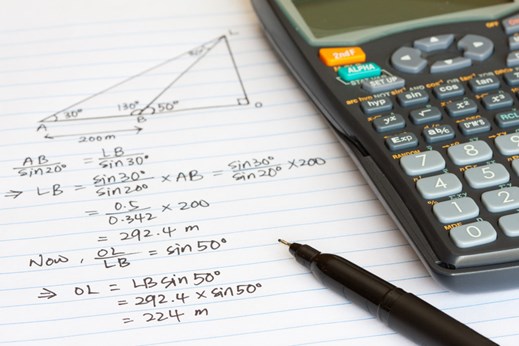 L
20°
30°
130°
50°
A
B
O
200m
AB/sin20° = LB/sin30°
⇒ LB = sin30°/sin20° × AB = sin30°/sin20° × 200
= 0.5/0.342 × 200
= 292.4 m
Now, OL/LB = sin50°
⇒ OL = LB sin50°
= 292.4 × sin50°
= 224 m
2ndF
ALPHA
SET UP
hyp
sin
cos
tan
Exp
7
8
4
5
1
2
0